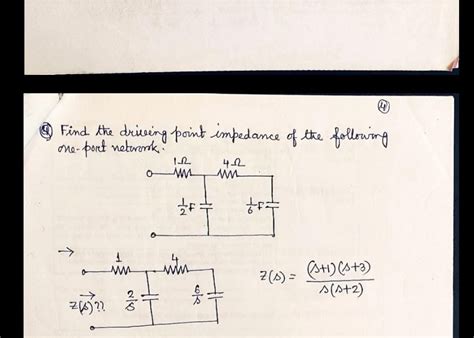 ④
④ Find the driving point impedance of the following
one-port network.
1Ω 4Ω
1/2 F 1/6 F
→
1 4
Z(s)?? 2/s 6/s
Z(s) = (s+1)(s+3) / s(s+2)